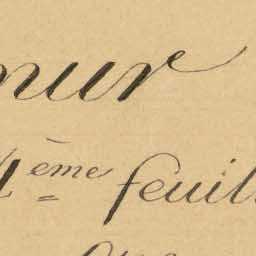 mur
4ème feuill